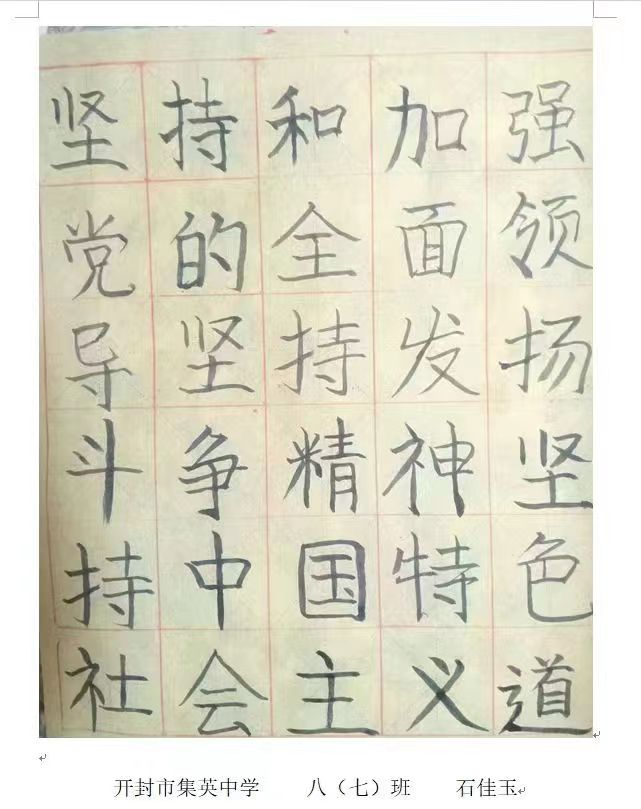 坚持和加强
党的全面领
导坚持发扬
斗争精神坚
持中国特色
社会主义道
开封市集英中学 八（七）班 石佳玉